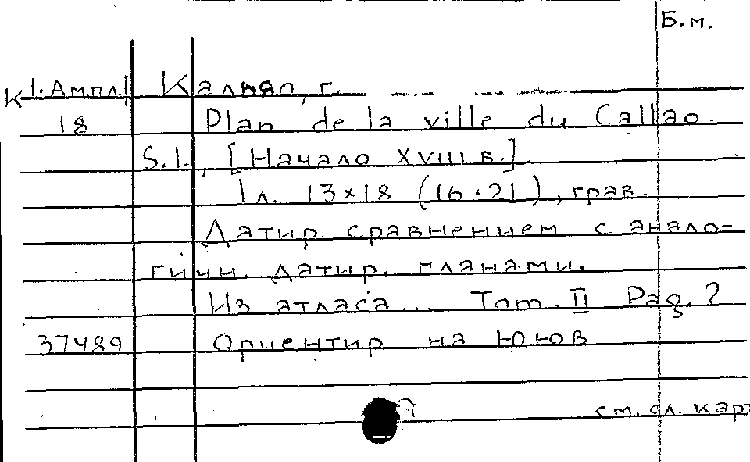 Б.м.
К 1-Ампл Кальяо, г.
18 Plan de la ville du Callao
S.l., [Начало XVIII в.]
1 л. 13×18 (16×21), грав.
Датир. сравнением с анало-
гичн. датир. планами.
Из атласа... Tom. II Pag. 2
37489 Ориентир. на ЮЮВ
см. сл. карт